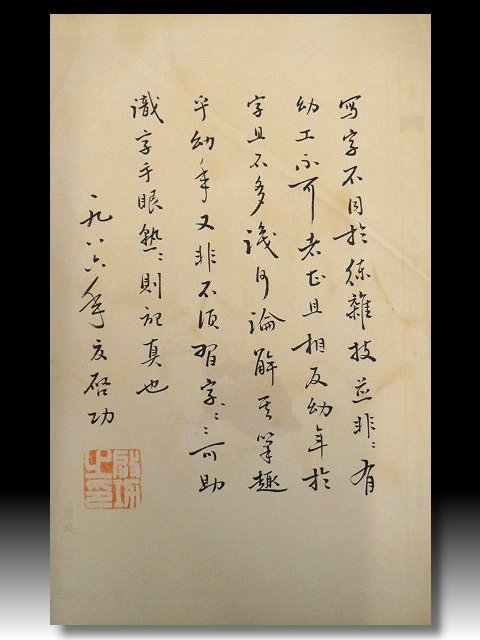 写字不同於練雜技並非〻有
幼工不可者甚且相反幼年於
字且不多識何論解其筆趣
乎幼年又非不須習字〻〻可助
識字手眼熟〻則記真也
一九八六年夏启功
啟功之印